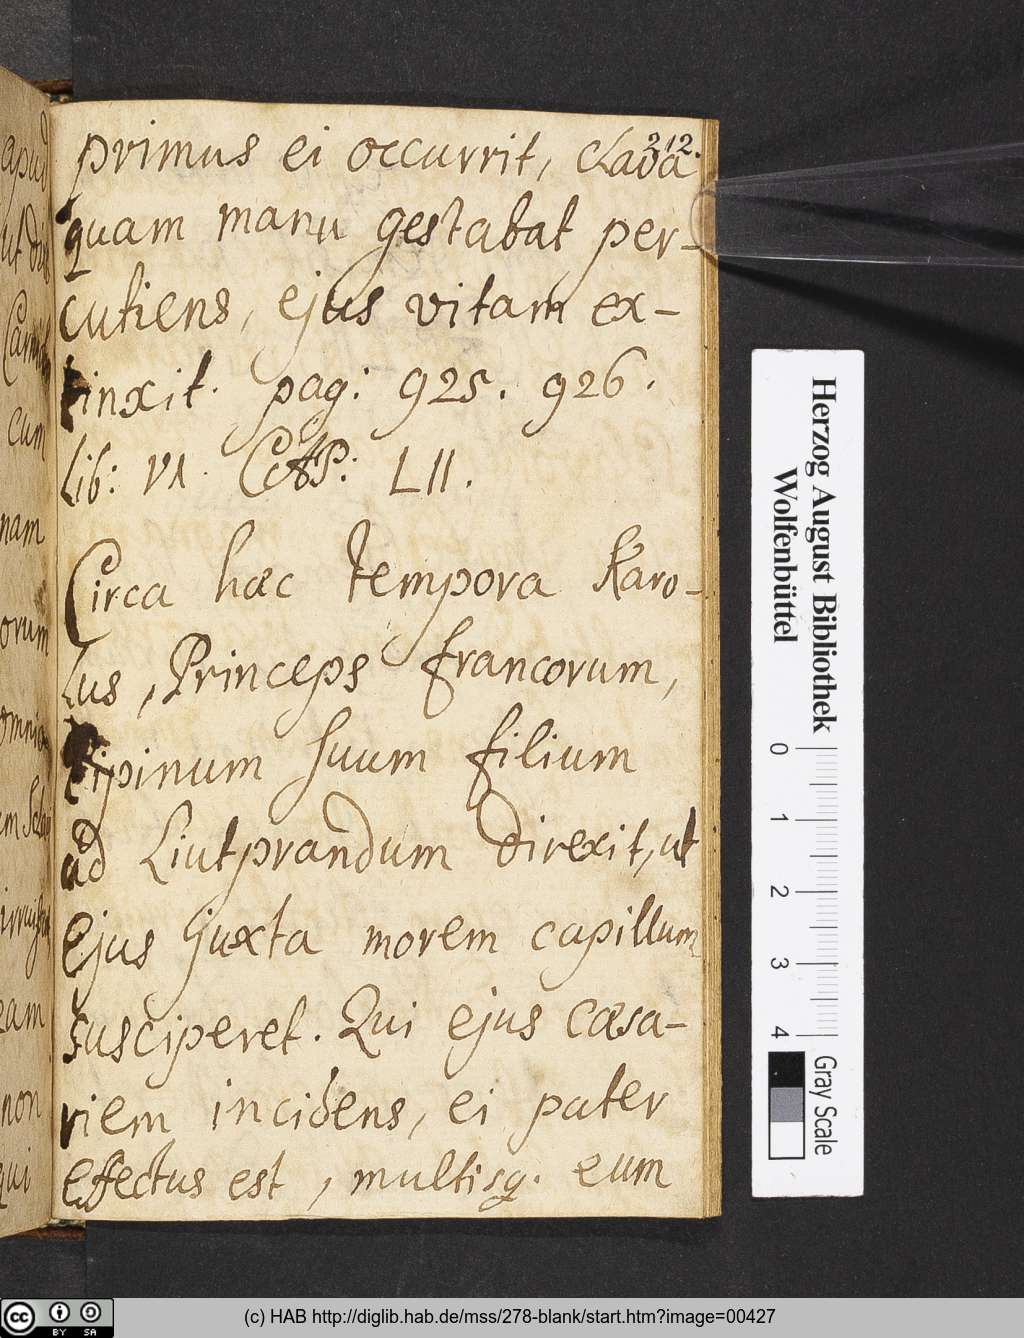 212.
primus ei occurrit, clava
quam manu gestabat per-
cutiens, ejus vitam ex-
tinxit. pag: 925. 926.
lib: VI. CAP: LII.
Circa hæc tempora Karo-
lus, Princeps francorum,
Pipinum suum filium
ad Liutprandum direxit, ut
Ejus juxta morem capillum
susciperet. Qui ejus cæsa-
riem incidens, ei pater
Effectus est, multisq. eum
apud
cum
nam
orum
eam
non
qui
Herzog August Bibliothek
Wolfenbüttel
0 1 2 3 4
Gray Scale
cc BY SA
(c) HAB http://diglib.hab.de/mss/278-blank/start.htm?image=00427